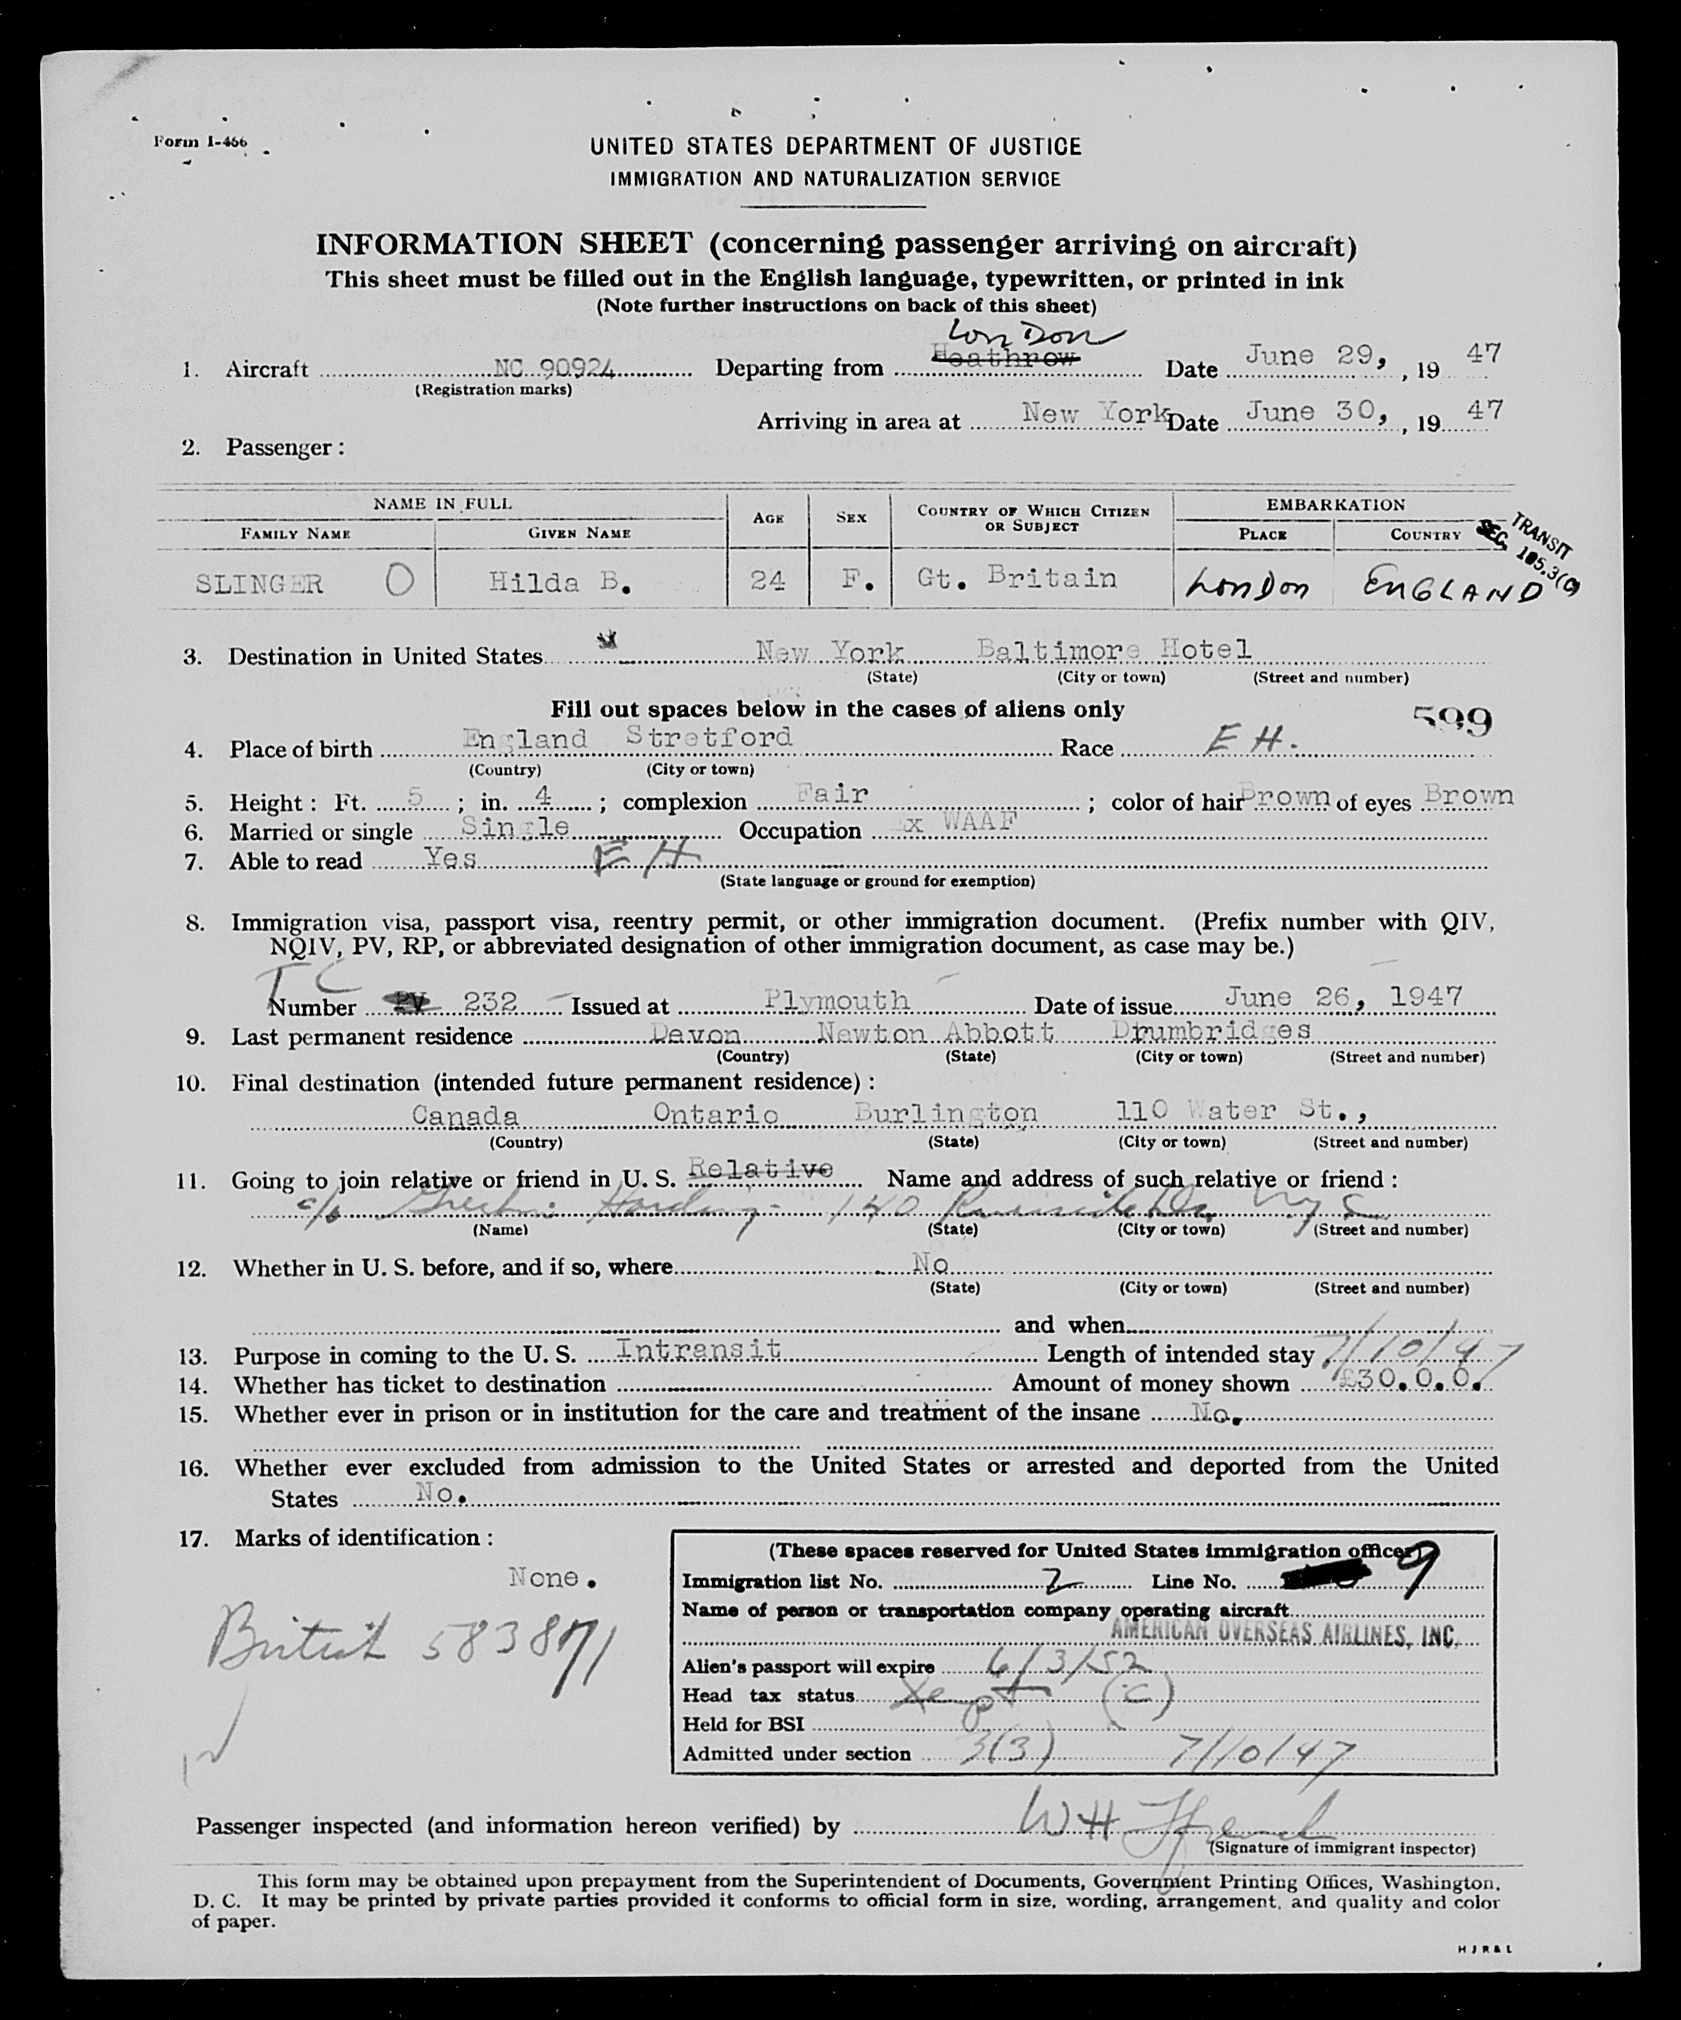 Form I-466
UNITED STATES DEPARTMENT OF JUSTICE
IMMIGRATION AND NATURALIZATION SERVICE
INFORMATION SHEET (concerning passenger arriving on aircraft)
This sheet must be filled out in the English language, typewritten, or printed in ink
(Note further instructions on back of this sheet)
LonDon
1. Aircraft NC 90924 Departing from Heathrow Date June 29, , 19 47
(Registration marks)
Arriving in area at New York Date June 30, , 19 47
2. Passenger :
NAME IN FULL AGE SEX COUNTRY OF WHICH CITIZEN OR SUBJECT EMBARKATION
FAMILY NAME GIVEN NAME PLACE COUNTRY
TRANSIT
SEC. 105.3(c)
SLINGER O Hilda B. 24 F. Gt. Britain LonDon ENGLAND
3. Destination in United States New York Baltimore Hotel
(State) (City or town) (Street and number)
Fill out spaces below in the cases of aliens only 599
4. Place of birth England Stretford Race EH.
(Country) (City or town)
5. Height : Ft. 5 ; in. 4 ; complexion Fair ; color of hair Brown of eyes Brown
6. Married or single Single Occupation x WAAF
7. Able to read Yes EH
(State language or ground for exemption)
8. Immigration visa, passport visa, reentry permit, or other immigration document. (Prefix number with QIV,
NQIV, PV, RP, or abbreviated designation of other immigration document, as case may be.)
TC
Number PV 232 Issued at Plymouth Date of issue June 26, 1947
9. Last permanent residence Devon Newton Abbott Drumbridges
(Country) (State) (City or town) (Street and number)
10. Final destination (intended future permanent residence) :
Canada Ontario Burlington 110 Water St.,
(Country) (State) (City or town) (Street and number)
11. Going to join relative or friend in U. S. Relative Name and address of such relative or friend :
c/o Harding - 140 Riverside Dr. NYC
(Name) (State) (City or town) (Street and number)
12. Whether in U. S. before, and if so, where No
(State) (City or town) (Street and number)
and when
13. Purpose in coming to the U. S. Intransit Length of intended stay 7/10/47
14. Whether has ticket to destination Amount of money shown £30.0.0.
15. Whether ever in prison or in institution for the care and treatment of the insane No.
16. Whether ever excluded from admission to the United States or arrested and deported from the United
States No.
17. Marks of identification :
None.
British 583871
(These spaces reserved for United States immigration officer)
Immigration list No. 2 Line No. 9
Name of person or transportation company operating aircraft
AMERICAN OVERSEAS AIRLINES, INC.
Alien's passport will expire 6/3/52
Head tax status Xempt (c)
Held for BSI
Admitted under section 3(3) 7/10/47
Passenger inspected (and information hereon verified) by WH Ffrench
(Signature of immigrant inspector)
This form may be obtained upon prepayment from the Superintendent of Documents, Government Printing Offices, Washington,
D. C. It may be printed by private parties provided it conforms to official form in size, wording, arrangement, and quality and color
of paper.
H J R & L